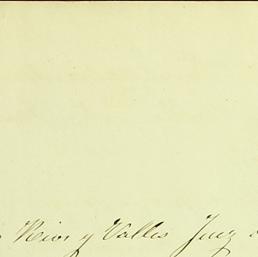 Rios y Valles Juez